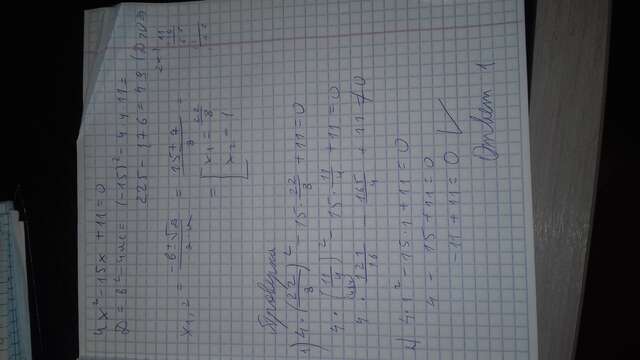 4x² - 15x + 11 = 0
D = b² - 4ac = (-15)² - 4 · 4 · 11 =
225 - 176 = 49 (D > 0)
x₁,₂ = (-b ± √D) / 2a = (15 ± 7) / 8 =
= [ x₁ = 22/8
x₂ = 1
Проверка
1) 4 · (22/8)² - 15 · 22/8 + 11 = 0
4 · (11/4)² - 15 · 11/4 + 11 = 0
4 · 121/16 - 165/4 + 11 ≠ 0
2) 4 · 1² - 15 · 1 + 11 = 0
4 - 15 + 11 = 0
-11 + 11 = 0 ✓
Ответ 1